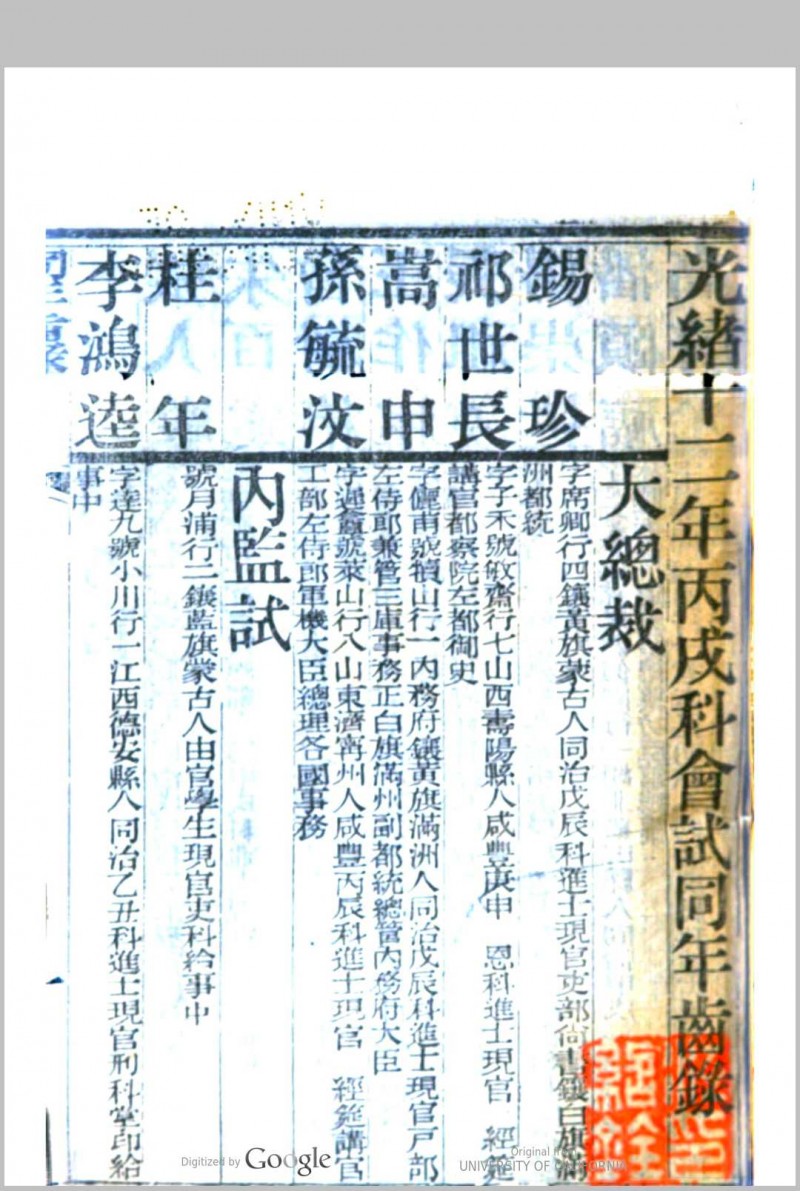 光緒十二年丙戌科會試同年齒錄
大總裁
錫珍
字席卿行四鑲黃旗蒙古人同治戊辰科進士現官吏部尚書鑲白旗滿
洲都統
祁世長
字子禾號敏齋行七山西壽陽縣人咸豐庚申 恩科進士現官 經筵
講官都察院左都御史
嵩申
字儷甫號犢山行一內務府鑲黃旗滿洲人同治戊辰科進士現官戶部
左侍郎兼管三庫事務正白旗滿州副都統總管內務府大臣
孫毓汶
字遲盦號萊山行八山東濟甯州人咸豐丙辰科進士現官 經筵講官
工部左侍郎軍機大臣總理各國事務
內監試
桂年
號月浦行二鑲藍旗蒙古人由官學生現官吏科給事中
李鴻逵
字達九號小川行一江西德安縣人同治乙丑科進士現官刑科掌印給
事中
Digitized by Google
Original from
UNIVERSITY OF CALIFORNIA